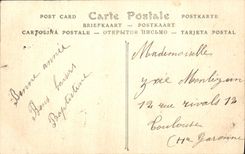 POST CARD Carte Postale POSTKARTE
BRIEFKAART — POSTKORT
CARTOLINA POSTALE — ОТКРЫТОЕ ПИСЬМО — TARJETA POSTAL
Bonne année
Bons baisers
Baptistine
Mademoiselle
12 rue rivals 12
Toulouse
(Hte Garonne)